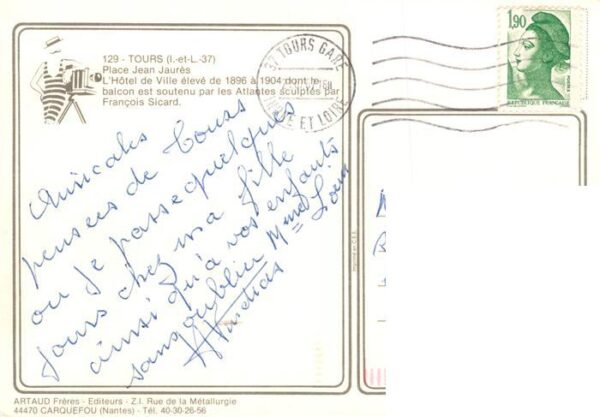 129 - TOURS (I.-et-L.-37)
Place Jean Jaurès
L'Hôtel de Ville élevé de 1896 à 1904 dont le
balcon est soutenu par les Atlantes sculptés par
François Sicard.
37 TOURS GARE
INDRE ET LOIRE
1,90
POSTES
REPUBLIQUE FRANÇAISE
Amicales
pensées de Tours
ou je passe quelques
jours chez ma fille
ainsi qu'à vos enfants
sans oublier Mme
Imprimé en C.E.E.
ARTAUD Frères - Editeurs - Z.I. Rue de la Métallurgie
44470 CARQUEFOU (Nantes) - Tél. 40-30-26-56